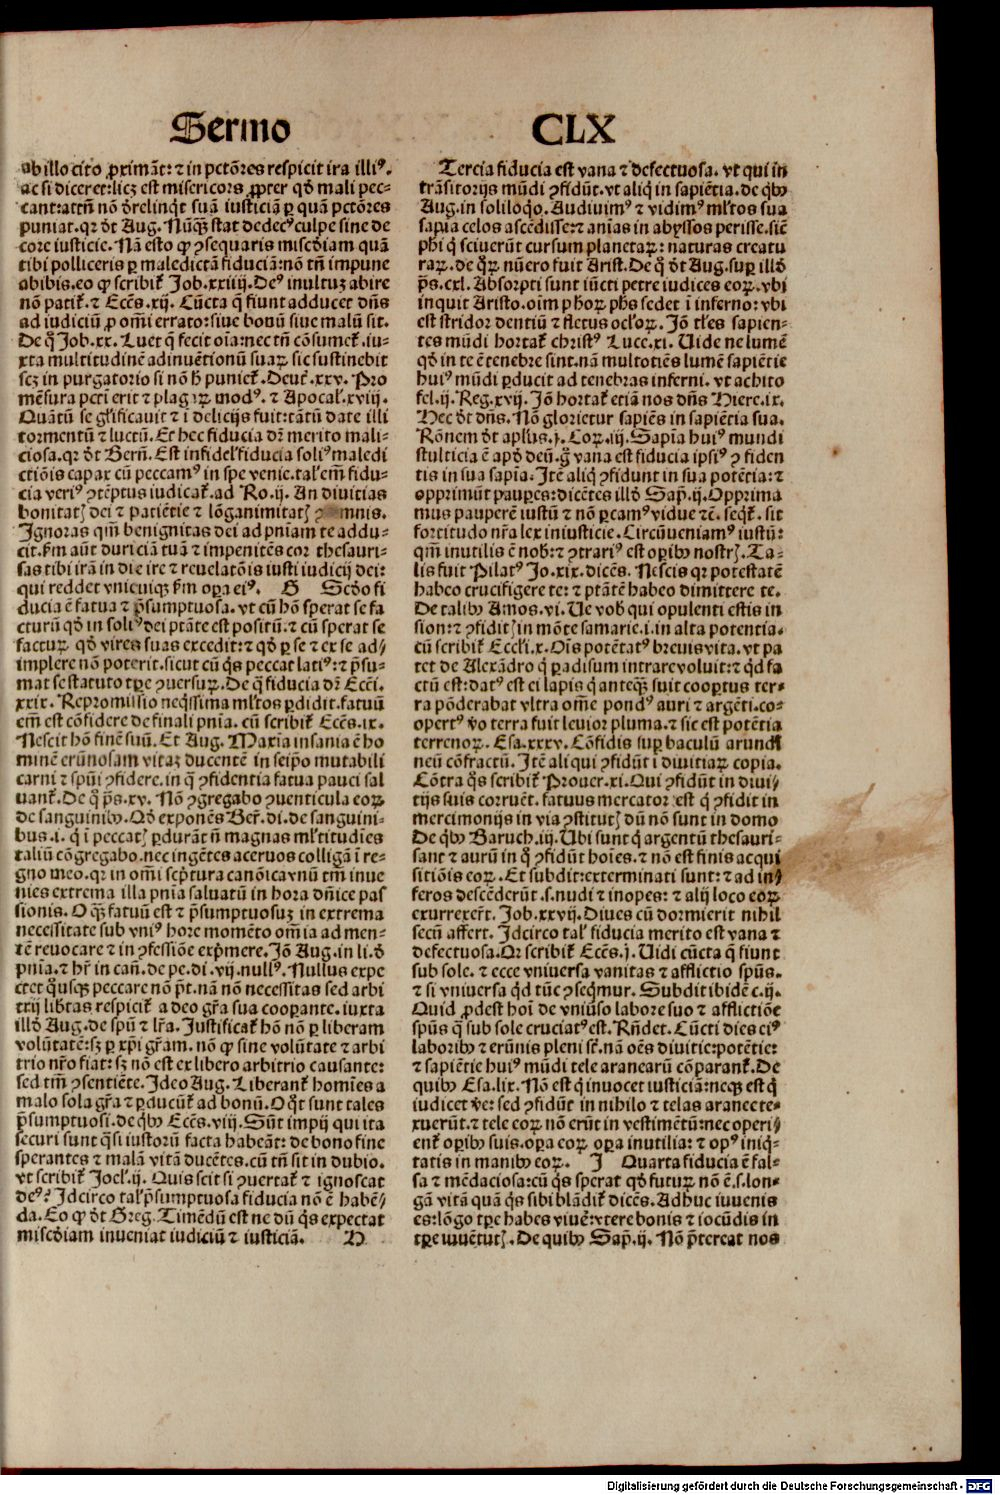 Sermo CLX
ab illo cito ꝓximāt: ⁊ in pctōres respicit ira illiꝰ.
ac si diceret: licꝫ est misericors ꝓpter qđ mali pec-
cant: attn̄ nō đrelinqͥt suā iusticiā ꝑ quā pctōres
puniat. qꝛ đt Aug. Nūqͣꝫ stat dedecꝰ culpe sine de
core iusticie. Nā esto ꝙ ꝯsequaris miscđiam quā
tibi polliceris ꝑ maledictā fiduciā: nō tn̄ impune
abibis. eo ꝙ scribit̄ Job. xxiiij. Deꝰ inultuꝫ abire
nō patit̄. ⁊ Ecc̄s. xij. Cūcta q̄ fiunt adducet dn̄s
ad iudiciū ꝓ om̄i errato: siue bonū siue malū sit.
De q̊ Job. xx. Luet q̄ fecit oīa: nec tn̄ cōsumet̄. iu-
xta multitudinē adinuētionū suaꝝ sic sustinebit
scꝫ in purgatorio si nō hͥ puniet̄. Deut̄. xxv. Pro
mēsura pctī erit ⁊ plagaꝝ modꝰ. ⁊ Apocal̄. xviij.
Quātū se gl̄ificauit ⁊ ī delicijs fuit: tātū date illi
tormentū ⁊ luctū. Et hec fiducia dr̄ merito mali-
ciosa. qꝛ đt Bern̄. Est infidel̄ fiducia soliꝰ maledi
ctiōis capax cū peccamꝰ in spe venie. tal̄ em̄ fidu-
cia veriꝰ ꝯtēptus iudicat̄. ad Ro. ij. An diuitias
bonitatꝭ dei ⁊ patiētie ⁊ lōganimitatꝭ
Ignoras qm̄ benignitas dei ad pniam te addu-
cit. ẜm aūt duriciā tuā ⁊ impenitēs cor thesauri-
sas tibi irā in die ire ⁊ reuelatōis iusti iudicij dei:
qui reddet vnicuiqꝫ ẜm oꝑa eiꝰ. G Scđo fi
ducia ē fatua ⁊ p̄sumptuosa. vt cū hō sperat se fa
cturū qđ in soliꝰ dei ptāte est positū. ⁊ cū sperat se
facturꝝ qđ vires suas excedit: ⁊ qđ ꝑ se ⁊ ex se ad/
implere nō poterit. sicut cū qͥs peccat latiꝰ: ⁊ p̄su-
mat se statuto tꝑe ꝯuersuꝝ. De q̄ fiducia dr̄ Ecc̄i.
xxix. Repromissio neqͥssima ml̄tos ꝑdidit. fatuū
em̄ est cōfidere de finali pnīa. cū scribit̄ Ecc̄s. ix.
Nescit hō finē suū. Et Aug. Maxīa insania ē ho
minē erūnosam vitaꝫ ducentē in seip̄o mutabili
carni ⁊ spūi ꝯfidere. in q̄ ꝯfidentia fatua pauci sal
uant̄. De q̊ p̄s. xv. Nō ꝯgregabo ꝯuenticula eoꝝ
de sanguinibꝰ. Qđ exponēs Ber̄. di. de sanguini-
bus. i. q̄ ī peccatꝭ ꝑdurāt n̄ū magnas ml̄titudīes
taliū cōgregabo. nec ingētes aceruos colligā ī re-
gno meo. qꝛ in om̄i scp̄tura canōica vnū tm̄ inue
nies extrema illa pnīa saluatū in hora dn̄ice pas
sionis. O qͣꝫ fatuū est ⁊ p̄sumptuosuꝫ in extrema
necessitate sub vniꝰ hore momēto om̄ia ad men-
tē reuocare ⁊ in ꝯfessiōe exp̄mere. Jō Aug. in li. đ
pnīa. ⁊ hr̄ in can̄. de pe. di. vij. nullꝰ. Nullus expe
ctet qͥusqꝫ peccare nō pt̄. nā nō necessitas sed arbi
trij lib̄tas respicit̄ a deo gr̄a sua cooꝑante. iuxta
illđ Aug. de spū ⁊ lr̄a. Justificat̄ hō nō ꝑ liberam
volūtatē: sꝫ ꝑ xp̄i gr̄am. non ꝙ sine volūtate ⁊ arbi
trio nr̄o fiat: sꝫ nō est ex libero arbitrio causante:
sed tm̄ ꝯsentiēte. Ideo Aug. Liberant̄ homīes a
malo sola gr̄a ⁊ ꝑducūt̄ ad bonū. O qͦt sunt tales
p̄sumptuosi. de qͥbꝰ Ecc̄s. viij. Sūt impij qui ita
securi sunt qͣsi iustorū facta habeāt: de bono fine
sperantes ⁊ malā vitā ducētes. cū tn̄ sit in dubio.
vt scribit̄ Joel̄. ij. Quis scit si ꝯuertat̄ ⁊ ignoscat
deꝰ? Idcirco tal̄ p̄sumptuosa fiducia nō ē habē/
da. Eo ꝙ đt Greg. Timēdū est ne dū qͥs expectat
miscđiam inueniat iudiciū ⁊ iusticiā. H
Tercia fiducia est vana ⁊ defectuosa. vt qui in
trāsitorijs mūdi ꝯfidūt. vt aliqͥ in sapiētia. de qͥbꝰ
Aug. in soliloqͦ. Audiuimꝰ ⁊ vidimꝰ ml̄tos sua
sapīa celos ascēdisse: ⁊ anīas in abyssos perisse. sic̄
ph̄i qͥ sciuerūt cursum planetaꝝ: naturas creatu
raꝝ. de qͦꝝ nūero fuit Arist. De qͦ đt Aug. suꝑ illđ
p̄s. cxl. Absorpti sunt iūcti petre iudices eoꝝ. vbi
inquit Aristo. oīm phoꝝ ph̄s sedet ī inferno: vbi
est stridor dentiū ⁊ fletus ocl̄oꝝ. Jō tl̄es sapien-
tes mūdi hortat̄ christꝰ Luce. xi. Vide ne lumē
qđ in te ē tenebre sint. nā multotiēs lumē sapiētie
huiꝰ mūdi ꝑducit ad tenebras inferni. vt achito
fel. ij. Reg. xvij. Jō hortat̄ etiā nos dn̄s Hiere. ix.
Hec đt dn̄s. Nō glorietur sapiēs in sapiētia sua.
Rōnem đt apl̄us. j. Coꝝ. iij. Sapīa huiꝰ mundi
stulticia ē apđ deū. g̊ vana est fiducia ipsiꝰ ꝯfiden
tis in sua sapīa. Itē aliqͥ ꝯfidunt in sua potētia: ⁊
opprimūt pauꝑes: dicētes illđ Sap̄. ij. Opprima
mus pauperē iustū ⁊ nō ꝑcamꝰ vidue ⁊c̄. seqͥt̄. sit
fortitudo nr̄a lex iniusticie. Circūueniamꝰ iustū:
qm̄ inutilis ē nob: ⁊ ꝯtrariꝰ est oꝑibꝰ nostrꝭ. Ta-
lis fuit Pilatꝰ Jo. xix. dicēs. Nescis qꝛ potestatē
habeo crucifigere te: ⁊ ptātē habeo dimittere te.
De talibꝰ Amos. vi. Ve vob qui opulenti estis in
sion: ⁊ ꝯfiditꝭ in mōte samarie. i. in alta potentia.
cū scribit̄ Eccl̄i. x. Oīs potētatꝰ breuis vita. vt pa
tet de Alexādro qͥ ꝑadisum intrare voluit: ⁊ qͥd fa
ctū est: datꝰ est ei lapis qͥ anteqͣꝫ fuit cooꝑtus ter-
ra pōderabat vltra om̄e pondꝰ auri ⁊ argēti. co-
oꝑtꝰ v̊o terra fuit leuior pluma. ⁊ sic est potētia
terrenoꝝ. Esa. xxxv. Cōfidis suꝑ baculū arundī
neū cōfractū. Itē aliqui ꝯfidūt ī diuitiaꝝ copia.
Cōtra qͦs scribit̄ Prouer. xi. Qui ꝯfidūt in diui/
tijs suis corruēt. fatuus mercator est qͥ ꝯfidit in
mercimonijs in via ꝯstitutꝭ dū nō sunt in domo
De qͥbꝰ Baruch. iij. Ubi sunt qͥ argentū thesauri-
sant ⁊ aurū in qͦ ꝯfidūt hoīes. ⁊ nō est finis acqui
sitiōis eoꝝ. Et subdit: exterminati sunt: ⁊ ad in/
feros descēderūt. s. nudi ⁊ inopes: ⁊ alij loco eoꝝ
exurrexer̄t. Job. xxvij. Diues cū dormierit nihil
secū affert. Idcirco tal̄ fiducia merito est vana ⁊
defectuosa. Qꝛ scribit̄ Ecc̄s. j. Uidi cūcta q̄ fiunt
sub sole. ⁊ ecce vniuersa vanitas ⁊ afflictio spūs.
⁊ si vniuersa qͥd tūc ꝯseqͥmur. Subdit ibidē c. ij.
Quid ꝓdest hoī de vniūso labore suo ⁊ afflictiōe
spūs q̄ sub sole cruciatꝰ est. Rn̄det. Cūcti dies eiꝰ
laboribꝰ ⁊ erūnis pleni sūt. nā oēs diuitie: potētie:
⁊ sapiētie huiꝰ mūdi tele aranearū cōparant̄. De
quibꝰ Esa. lix. Nō est qͥ inuocet iusticiā: neqꝫ est qͥ
iudicet v̄e: sed ꝯfidūt in nihilo ⁊ telas aranee te-
xuerūt. ⁊ tele eoꝝ nō erūt in vestimētū: nec operi/
ent̄ oꝑibꝰ suis. oꝑa eoꝝ oꝑa inutilia: ⁊ opꝰ iniqͥ-
tatis in manibꝰ eoꝝ. J Quarta fiducia ē fal-
sa ⁊ mēdaciosa: cū qͥs sperat qđ futuꝝ nō ē. s. lon-
gā vitā quā qͥs sibi blādit̄ dicēs. Adhuc iuuenis
es: lōgo tꝑe habes viuē: vtere bonis ⁊ iocūdis in
tꝑe iuuētutꝭ. De quibꝰ Sap̄. ij. Nō p̄tereat nos
Digitalisierung gefördert durch die Deutsche Forschungsgemeinschaft - DFG